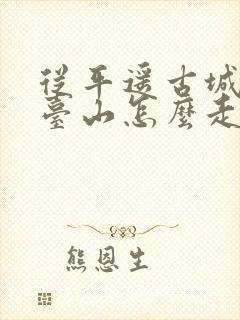 從平遥古城
臺山怎麼走
熊恩生